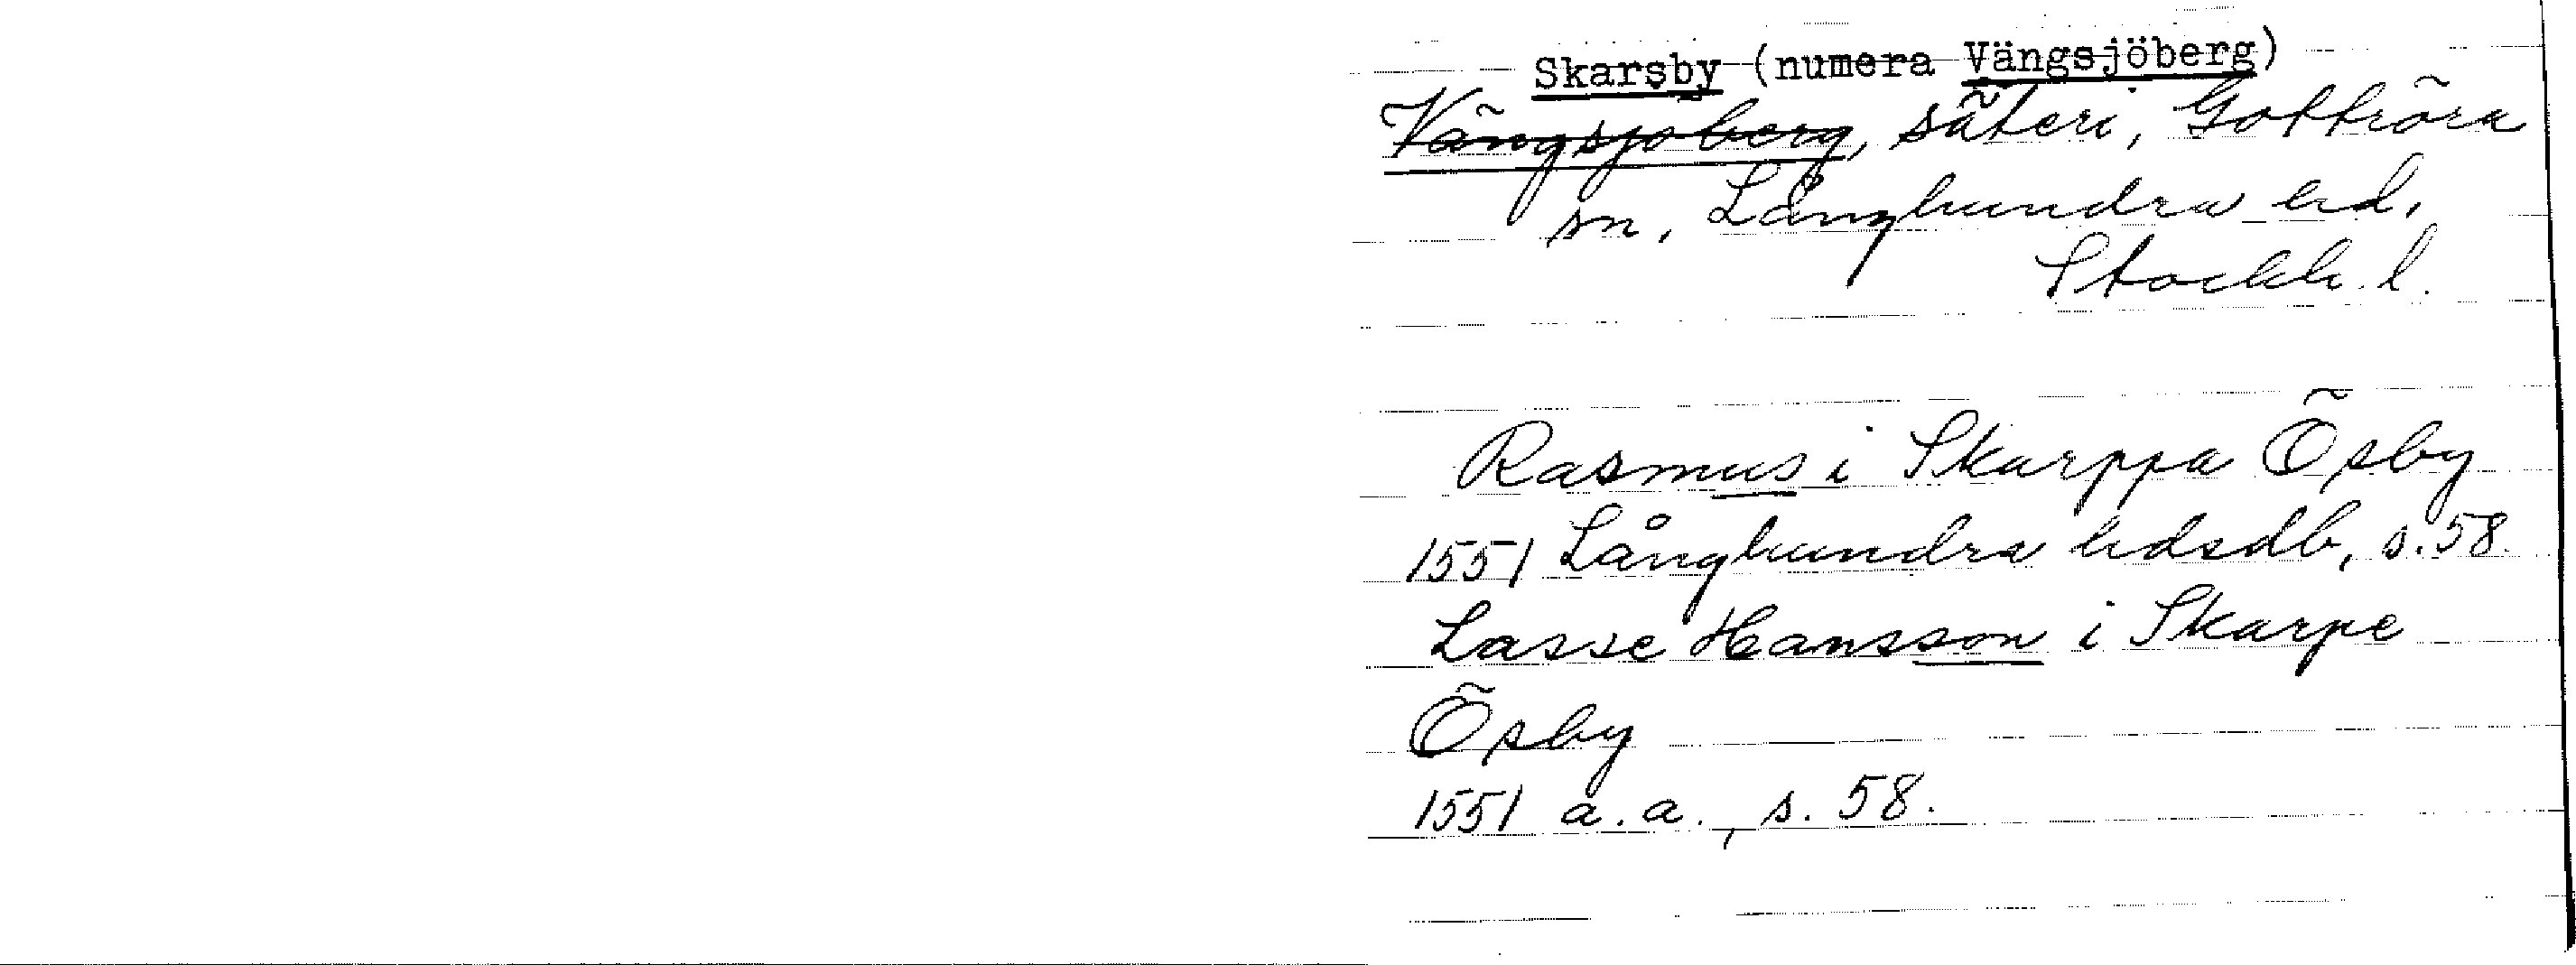 Skarsby (numera Vängsjöberg)
Vängsjöberg, säteri, Gottröra
sn, Långhundra hd,
Stockh. l.
Rasmus i Skarppa Ösby
1551 Långhundra hdsdb, s. 58.
Lasse Hansson i Skarpe
Ösby
1551 a.a., s. 58.